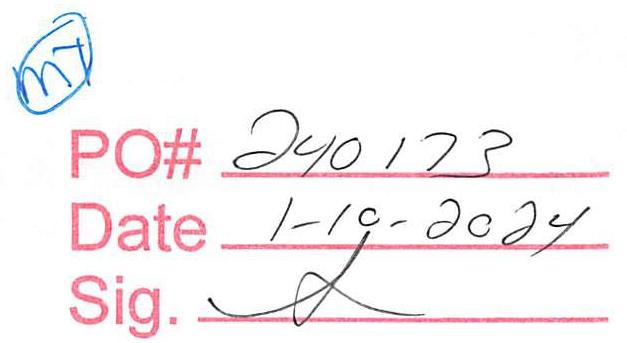 MT
PO# 240173
Date 1-10-2024
Sig.